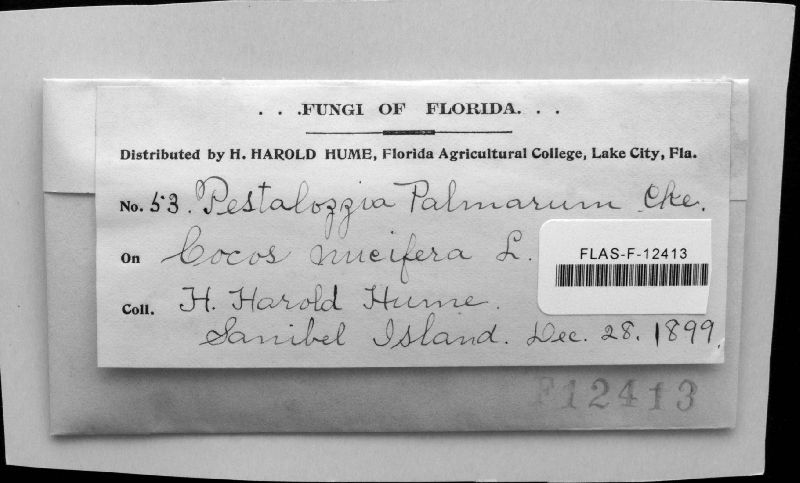 . . .FUNGI OF FLORIDA. . .
Distributed by H. HAROLD HUME, Florida Agricultural College, Lake City, Fla.
No. 53. Pestalozzia Palmarum Cke.
On Cocos nucifera L.
FLAS-F-12413
Coll. H. Harold Hume.
Sanibel Island. Dec. 28. 1899.
F12413